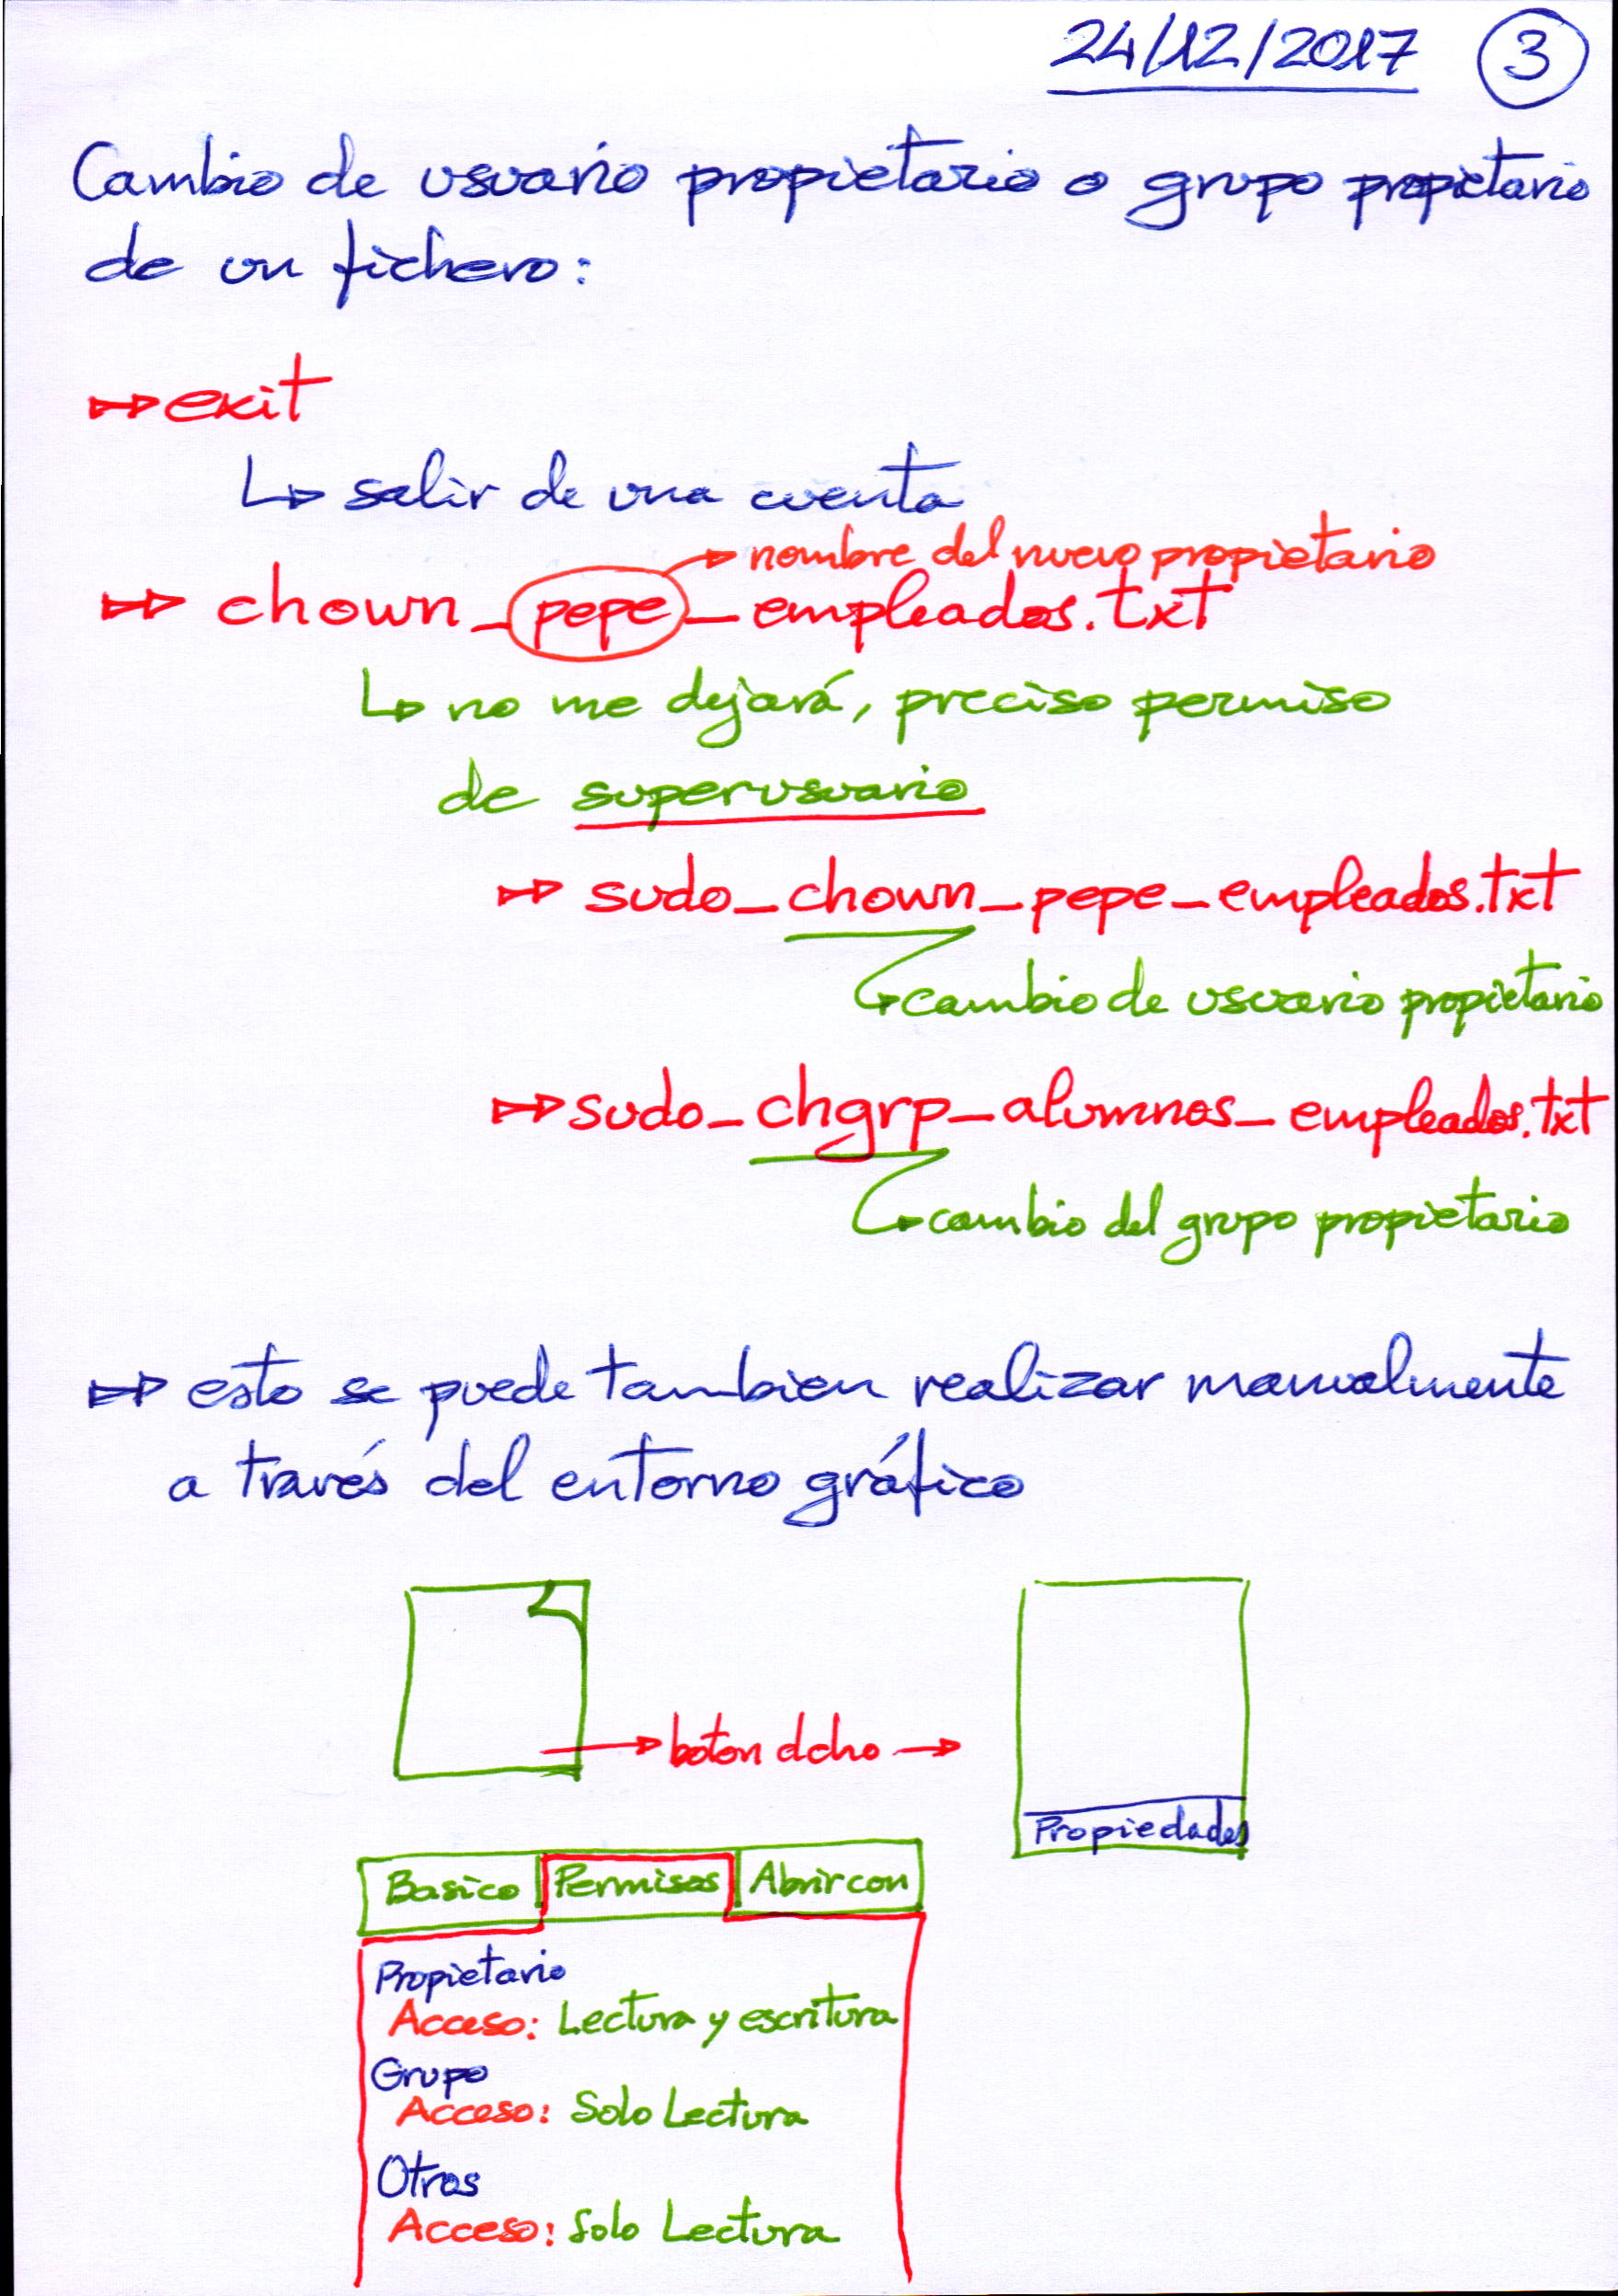 24/12/2017 3
Cambio de usuario propietario o grupo propietario
de un fichero:
exit
salir de una cuenta
nombre del nuevo propietario
chown_pepe_empleados.txt
no me dejará, preciso permiso
de superusuario
sudo_chown_pepe_empleados.txt
cambio de usuario propietario
sudo_chgrp_alumnos_empleados.txt
cambio del grupo propietario
esto se puede tambien realizar manualmente
a través del entorno gráfico
boton dcho
Propiedades
Basico Permisos Abrir con
Propietario
Acceso: Lectura y escritura
Grupo
Acceso: Solo Lectura
Otros
Acceso: Solo Lectura